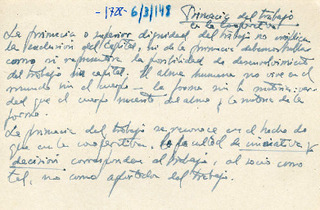 -1788- 6/3/148
Primacia del trabajo
en la cooperativa
La primacia o superior dignidad del trabajo no implica
la exclusion del capital, ni de la primacia
como ni la posibilidad de desenvolvimiento
del trabajo sin capital. El alma humana no vive en el
mundo sin el cuerpo — la forma sin la materia:
dad que el cuerpo del alma y la materia de la
forma.
La primacia del trabajo se reconoce en el hecho de
que en la cooperativa, la facultad de iniciativa y
decisión corresponden al trabajo, al socio como
tal, no como aportador del trabajo.